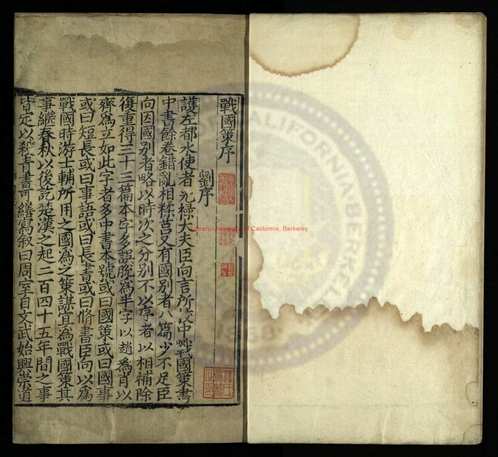 戰國策序
劉序
護左都水使者光祿大夫臣向言所校中戰國策書
中書餘卷錯亂相糅莒又有國別者八篇少不足臣
向因國別者略以時次之分別不以序者以相補除
復重得三十三篇本字多誤脫為半字以趙為肖以
齊為立如此字者多中書本號或曰國策或曰國事
或曰短長或曰事語或曰長書或曰脩書臣向以為
戰國時游士輔所用之國為之策謀冝為戰國策其
事繼春秋以後訖楚漢之起二百四十五年間之事
皆定以殺青書可繕寫叙曰周室自文武始興崇道